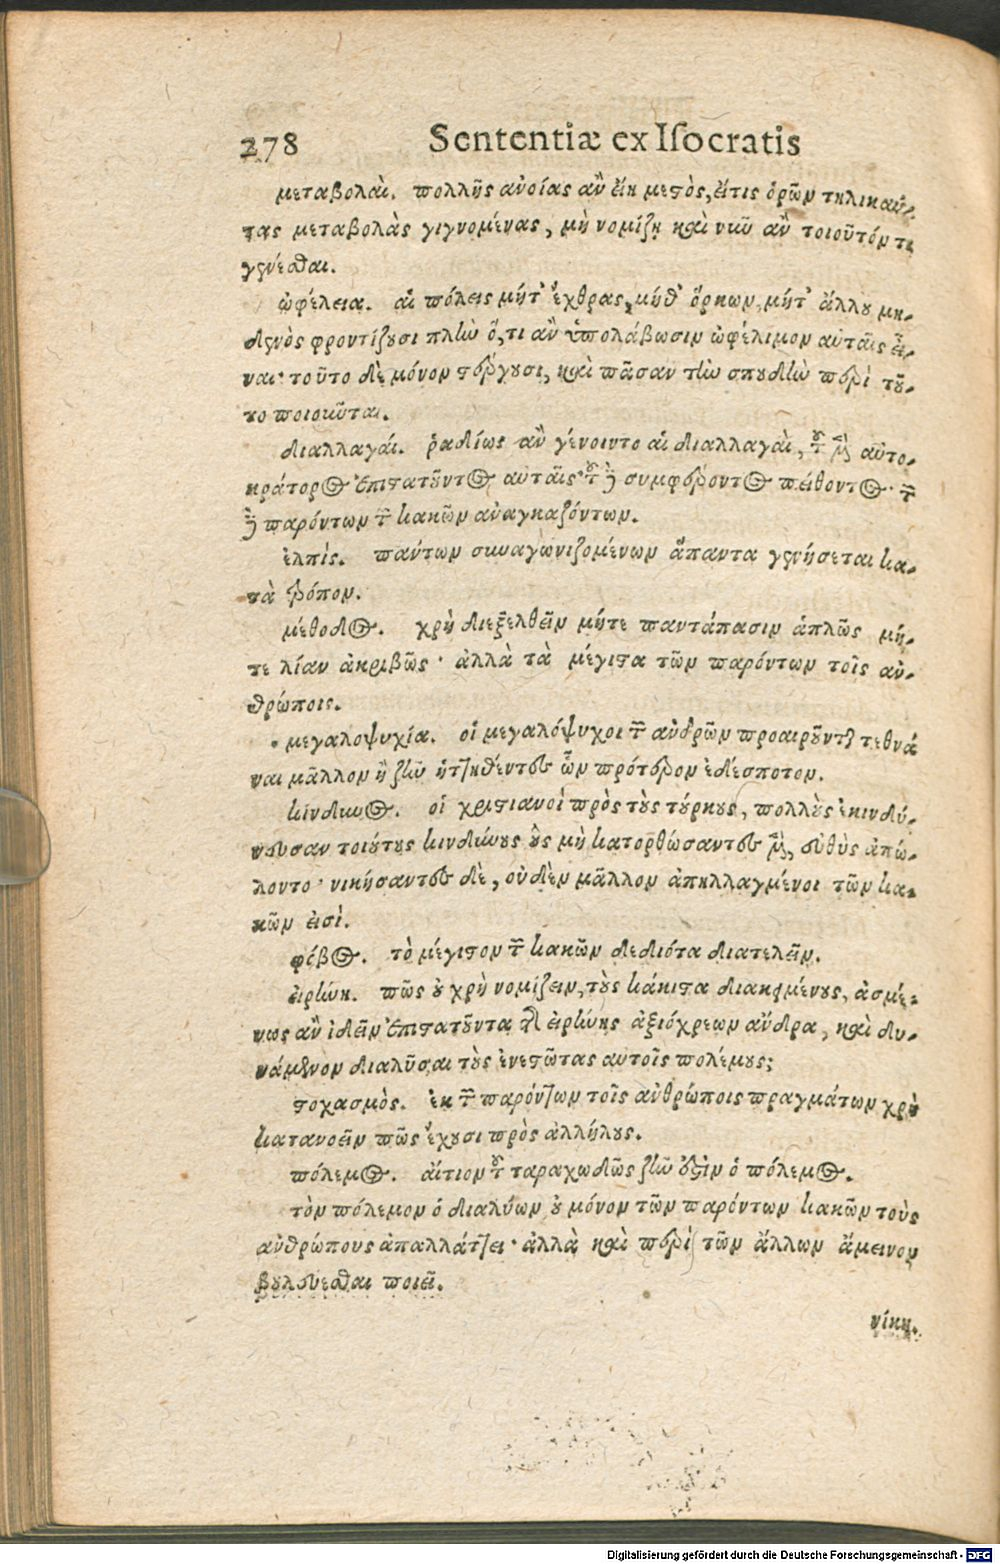 278 Sententiæ ex Iſocratis
μεταβολαὶ. πολλῆς ἀνοίας ἂν εἴη μεστὸς, εἴτις ὁρῶν τηλικαύ-
τας μεταβολὰς γιγνομένας, μὴ νομίζῃ καὶ νῦν ἂν τοιοῦτόν τι
γενέσθαι.
ὠφέλεια. αἱ πόλεις μήτ' ἔχθρας, μήθ' ὅρκων, μήτ' ἄλλου μη-
δενὸς φροντίζουσι πλὴν ὅ,τι ἂν ὑπολάβωσιν ὠφέλιμον αὐταῖς εἶ-
ναι· τοῦτο δὲ μόνον στέργουσι, καὶ πᾶσαν τὴν σπουδὴν περὶ τού-
του ποιοῦνται.
διαλλαγαί. ῥαδίως ἂν γένοιντο αἱ διαλλαγαὶ, τοῦ μὲν αὐτο-
κράτορος ἐπιστατοῦντος αὐταῖς· τοῦ δὲ συμφέροντος πείθοντος· τῶν
δὲ παρόντων τῶν κακῶν ἀναγκαζόντων.
ἐλπίς. πάντων συναγωνιζομένων ἅπαντα γενήσεται κα-
τὰ τρόπον.
μέθοδος. χρὴ διεξελθεῖν μήτε παντάπασιν ἁπλῶς μή-
τε λίαν ἀκριβῶς· ἀλλὰ τὰ μέγιστα τῶν παρόντων τοῖς ἀν-
θρώποις.
μεγαλοψυχία. οἱ μεγαλόψυχοι τῶν ἀνδρῶν προαιροῦνται τεθνά
ναι μᾶλλον ἢ ζῆν ἡττηθέντες ὧν πρότερον ἐδέσποτον.
κίνδυνος. οἱ χριστιανοὶ πρὸς τοὺς τύρκους, πολλοὺς ἐκινδύ-
νευσαν τοιούτους κινδύνους οὓς μὴ κατορθώσαντες μὲν, εὐθὺς ἀπώ-
λοντο· νικήσαντες δὲ, οὐδὲν μᾶλλον ἀπηλλαγμένοι τῶν κα-
κῶν εἰσὶ.
φόβος. τὸ μέγιστον τῶν κακῶν δεδιότα διατελεῖν.
εἰρήνη. πῶς οὐ χρὴ νομίζειν, τοὺς κάκιστα διακειμένους, ἀσμέ-
νως ἂν ἰδεῖν ἐπιστατοῦντα τῆς εἰρήνης ἀξιόχρεων ἄνδρα, καὶ δυ-
νάμενον διαλῦσαι τοὺς ἐνεστῶτας αὐτοῖς πολέμους;
στοχασμὸς. ἐκ τῶν παρόντων τοῖς ἀνθρώποις πραγμάτων χρὴ
κατανοεῖν πῶς ἔχουσι πρὸς ἀλλήλους.
πόλεμος. αἴτιον τοῦ ταραχωδῶς ζῆν ἐστὶν ὁ πόλεμος.
τὸν πόλεμον ὁ διαλύων οὐ μόνον τῶν παρόντων κακῶν τοὺς
ἀνθρώπους ἀπαλλάττει· ἀλλὰ καὶ περὶ τῶν ἄλλων ἄμεινον
βουλεύεσθαι ποιεῖ.
νίκη.
Digitalisierung gefördert durch die Deutsche Forschungsgemeinschaft - DFG